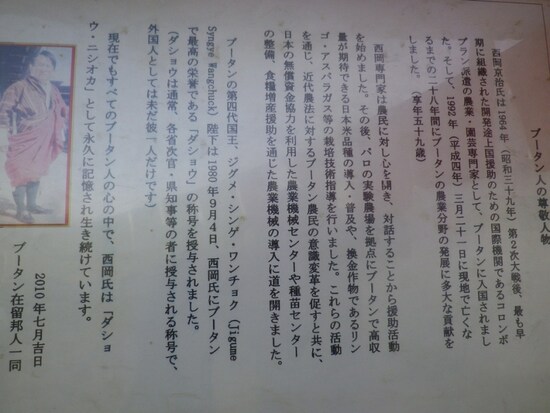 ブータン人の尊敬人物
西岡京治氏は1964年（昭和三十九年）第2次大戦後、最も早
期に組織された開発途上国援助のための国際機関であるコロンボ
プラン派遣の農業・園芸専門家として、ブータンに入国されまし
た。そして、1992年（平成四年）三月二十一日に現地で亡くな
るまでの二十八年間にブータンの農業分野の発展に多大な貢献を
しました。（享年五十九歳）
西岡専門家は農民に対し心を開き、対話することから援助活動
を始めました。その後、パロの実験農場を拠点にブータンで高収
量が期待できる日本米品種の導入・普及や、換金作物であるリン
ゴ・アスパラガス等の栽培技術指導を行いました。これらの活動
を通じ、近代農法に対するブータン農民の意識変革を促すと共に、
日本の無償資金協力を利用した農業機械センターや種苗センター
の整備、食糧増産援助を通じた農業機械の導入に道を開きました。
ブータンの第四代国王、ジグメ・シンゲ・ワンチョク（Jigume
Syngye Wangchuck）陛下は1980年９月４日、西岡氏にブータン
で最高の栄誉である「ダショウ」の称号を授与されました。
（ダショウは通常、各省次官・県知事等の者に授与される称号で、
外国人としては未だ彼一人だけです）
現在でもすべてのブータン人の心の中で、西岡氏は「ダショ
ウ・ニシオカ」として永久に記憶され生き続けています。
2010年七月吉日
ブータン在留邦人一同